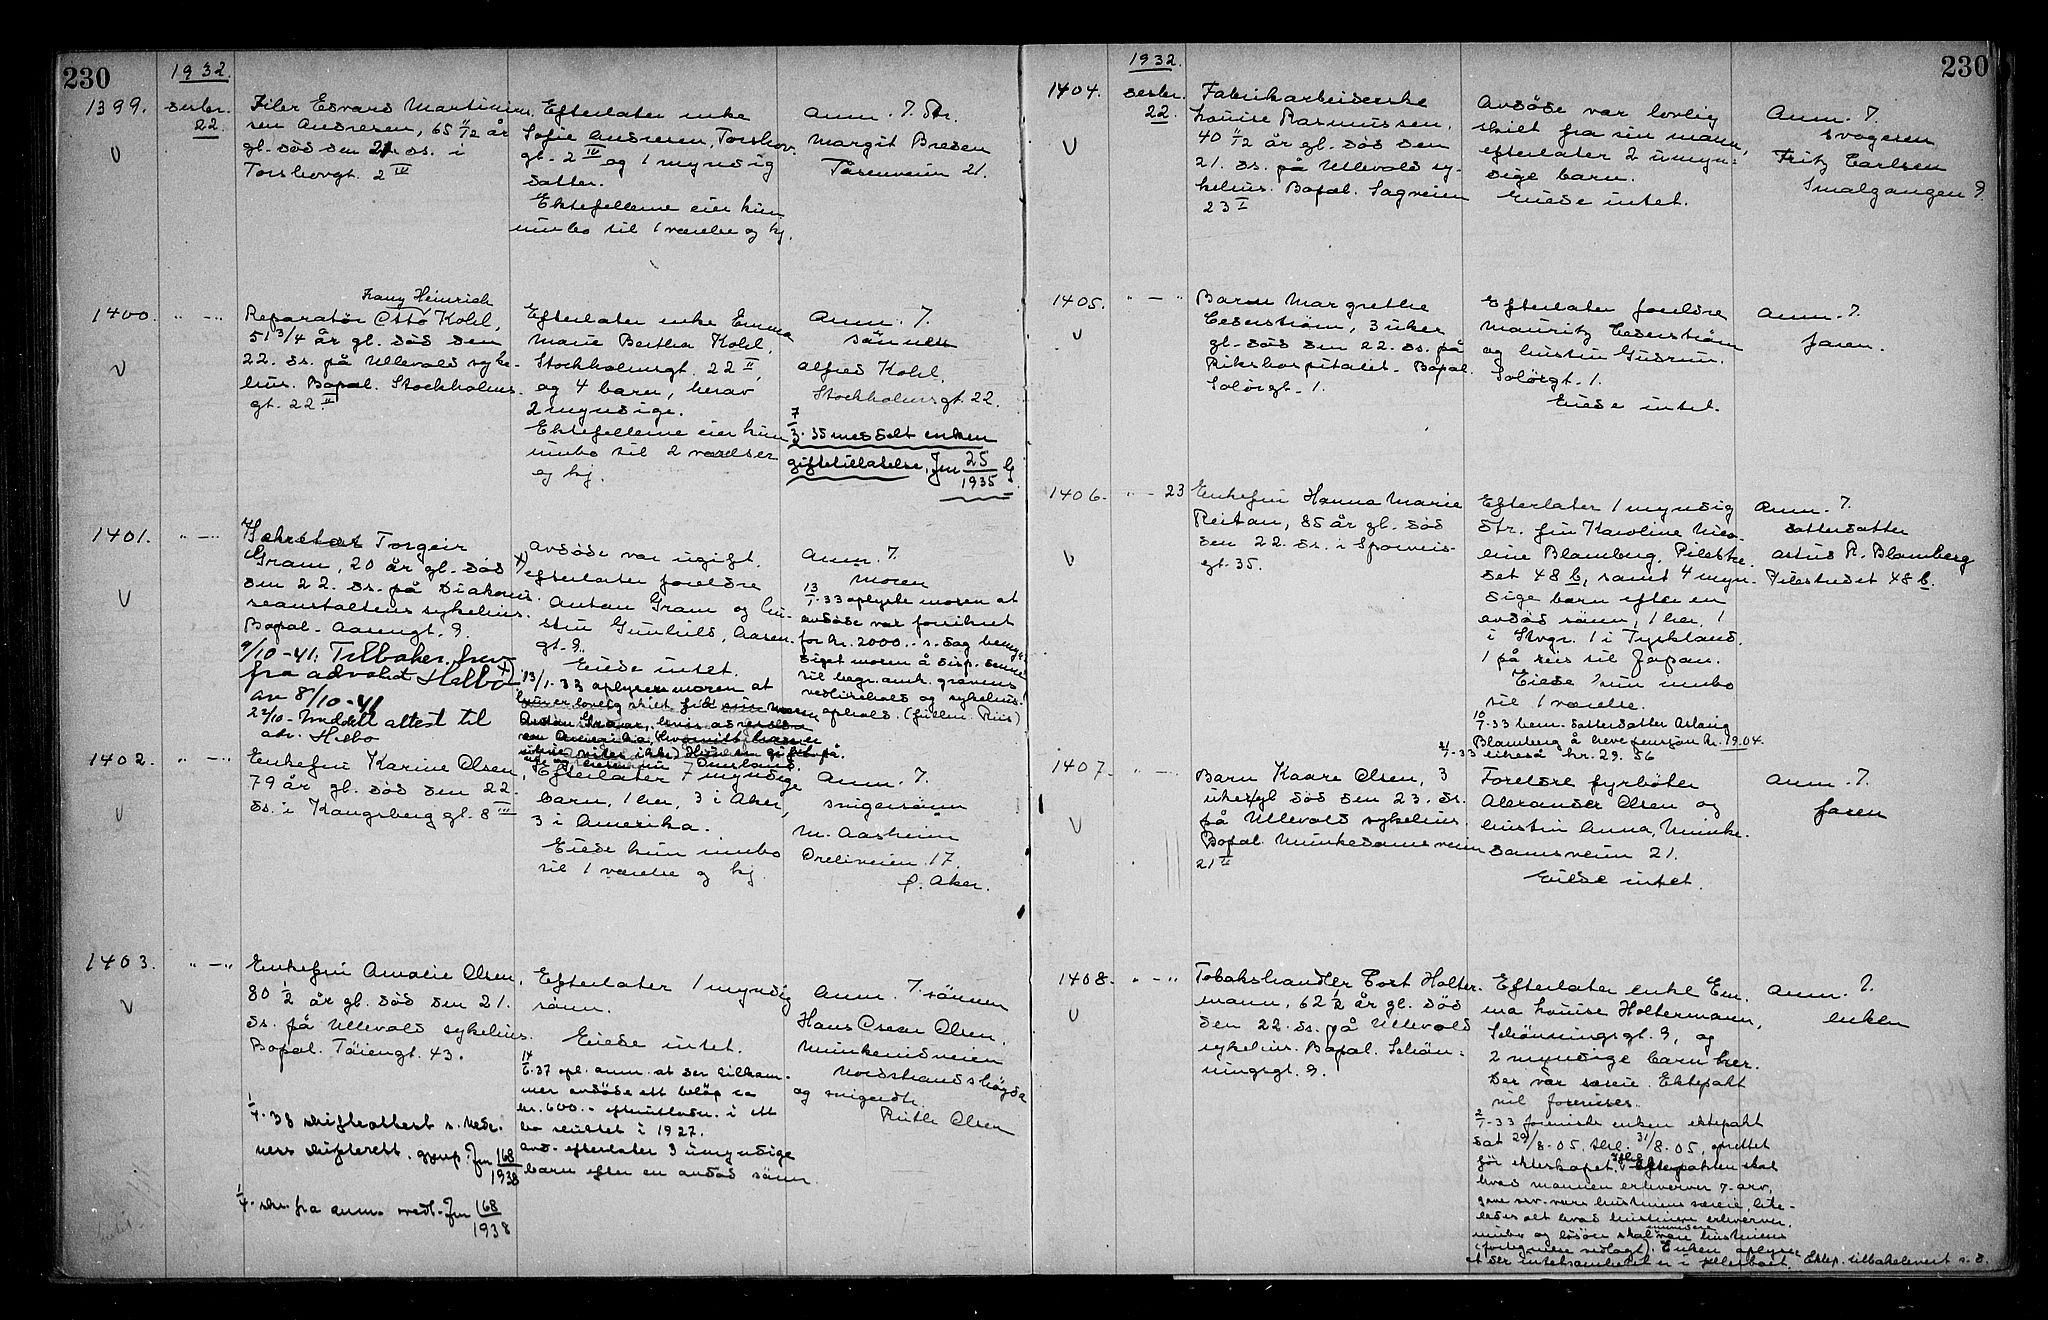 230
1932.
1399.
desbr.
22.
Filer Edvard Martinius
sen Andresen, 65 11/12 år
gl. død den 21. ds. i
Torshovgt. 2 IV
Efterlater enke
Sofie Andresen, Torshov.
gt. 2 IV og 1 myndig
datter.
Ektefellerne eier kun
innbo til 1 værelse og kj.
Anm. 7. dtr.
Margit Breden
Tåsenveien 21.
1400.
" — "
Franz Heinrich
Reparatør Otto Kohl,
51 3/4 år gl. død den
22. ds. på Ullevold syke-
hus. Bopæl. Stockholms
gt. 22 II
Efterlater enke Emma
Marie Bertha Kohl,
Stockholmsgt. 22 II,
og 4 barn, herav
2 myndige.
Ektefellerne eier kun
innbo til 2 værelser
og kj.
Anm. 7.
sønnen
Alfred Kohl.
Stockholmsgt. 22.
7/3. 35 meddelt enken
giftetillatelse, Jm 25/1935 G
1401.
" — "
Torgeir
Gram, 20 år gl. død
den 22. ds. på Diakonis-
seanstaltens sykehus.
Bopæl. Aasengt. 9.
9/10-41: Tilbaker. frem
fra advokat Helbo
av 8/10-41
22/10- Inddelt attest til
adv. Helbo
Avdøde var ugift.
efterlater foreldre
Antan Gram og hu-
stru Gunhild, Aasen.
gt. 9.
Eiede intet.
13/1. 33 oplyser moren at
hun er lovlig skilt fra sin mann
Anm. 7.
moren
13/1. 33 oplyste moren at
avdøde var forsikret
for kr. 2000.- s. dag bemyn-
diget moren å disp. denne
til begr. omk. gravens
vedlikehold og sykehus-
ophold. (fullm. Riis)
1402.
" — "
Enkefru Karine Olsen,
79 år gl. død den 22.
ds. i Kongsberg gt. 8 III
Efterlater 7 myndige
barn, 1 her, 3 i Aker,
3 i Amerika.
Eiede kun innbo
til 1 værelse og kj.
Anm. 7.
svigersønn
M. Aasheim
Dreliveien 17.
Ø. Aker.
1403.
" — "
Enkefru Amalie Olsen,
80 1/2 år gl. død den 21.
ds. på Ullevold sykehus.
Bopæl. Tøiengt. 43.
1/4. 38 skifteattest s. Nede-
nes skifterett. gjenp. Jm 168/1938
1/4. skr. fra anm. vedl. Jm 168/1938
Efterlater 1 myndig
sønn.
Eiede intet.
14/5. 37 opl. anm. at der tilkom-
mer avdøde ett beløp ca
kr. 600.- efterutlodn. i ett
bo sluttet i 1927.
avd. efterlater 3 umyndige
barn efter en avdød sønn.
Anm. 7. sønnen
Hans Oscar Olsen,
Munkerudveien
Nordstrandshøgda
og svigerdtr.
Ruth Olsen
230
1932.
1404.
desbr.
22.
Fabrikarbeiderske
Louise Rasmussen,
40 11/12 år gl. død den
21. ds. på Ullevold sy-
kehus. Bopæl. Sagveien
23 I
Avdøde var lovlig
skilt fra sin mann,
efterlater 2 umyn-
dige barn.
Eiede intet.
Anm. 7.
svogeren
Fritz Carlsen
Smalgangen 9.
1405.
" — "
Barn Margrethe
Cederstrøm, 3 uker
gl. død den 22. ds. på
Rikshospitalet. Bopæl.
Solørgt. 1.
Efterlater foreldre
Mauritz Cederstrøm
og hustru Gudrun.
Solørgt. 1.
Eiede intet.
Anm. 7.
faren.
1406.
" — 23
Enkefru Hanna Marie
Reitan, 85 år gl. død
den 22. ds. i Sporveis-
gt. 35.
Efterlater 1 myndig
dtr. fru Karoline Nico-
line Blamberg, Pilestre-
det 48 b, samt 4 myn-
dige barn efter en
avdød sønn, 1 her, 1
i Stvgr. 1 i Tyskland.
1 på reis til Japan.
Eiede kun innbo
til 1 værelse.
10/1-33 bem. datterdatter Aslaug
Blamberg å heve pensjon kr. 19.04.
likeså kr. 29. 56
Anm. 7.
datterdatter
Blamberg
Pilestredet 48 b.
1407.
" — "
Barn Kaare Olsen, 3
uker gl. død den 23. ds.
på Ullevold sykehus
Bopæl. Munkedamsveien
21 II
Foreldre fyrbøter
Alexander Olsen og
hustru Anna, Munke-
damsveien 21.
Eiede intet.
Anm. 7.
faren
1408.
" — "
Tobakshandler Cort Holter-
mann, 62 1/2 år gl. død
den 22. ds. på Ullevold
sykehus. Bopæl. Schøn-
ningsgt. 9.
Efterlater enke Em-
ma Louise Holtermann,
Schønningsgt. 9, og
2 myndige barn her.
Der var særeie. Ektepakt
vil forevises.
2/1-33 foreviste enken ektepakt
dat 29/8-05, thl. 31/8.05, oprettet
før ekteskapet. Ifølge Ektepakten skal
hvad mannen erhverver v. arv,
gave osv. være hustruens særeie, like-
ledes alt hvad hustruen erhverver,
innbo og løsøre skal være hustruens
(fortegnelse vedlagt). Enken oplyser
at der intetsomhelst er i fellesboet. Ektep. tilbakelevert s. d.
Anm. 7.
enken